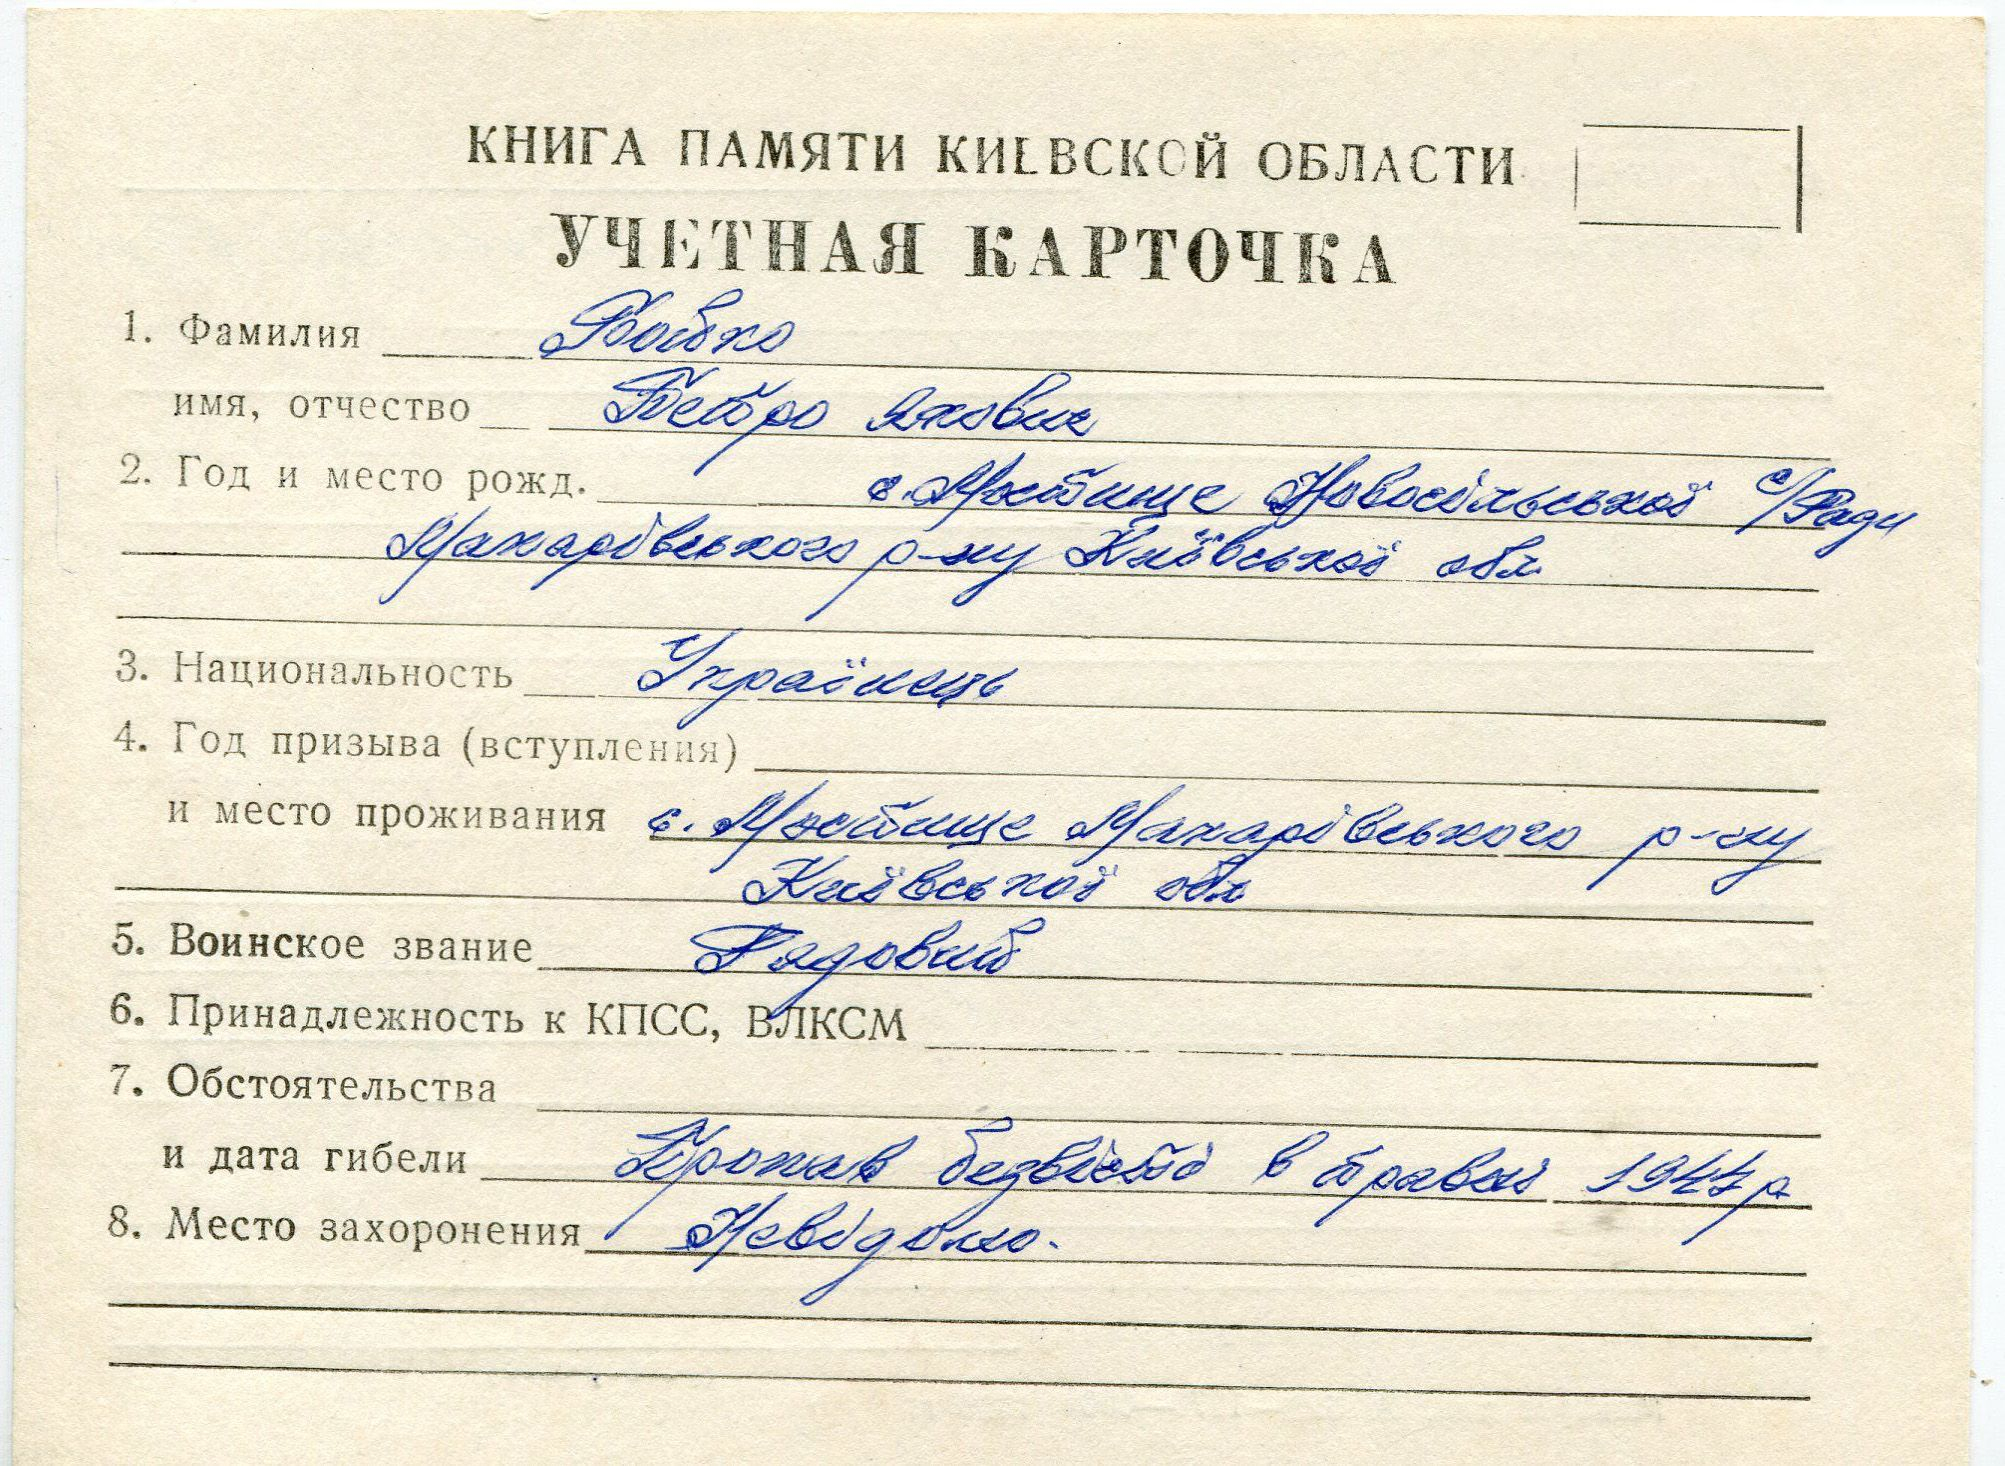 КНИГА ПАМЯТИ КИЕВСКОЙ ОБЛАСТИ
УЧЕТНАЯ КАРТОЧКА
1. Фамилия Бойко
имя, отчество Петро Якович
2. Год и место рожд. с. Мостище Новосільської с/Ради
Макарівського р-ну Київської обл.
3. Национальность Українець
4. Год призыва (вступления)
и место проживания с. Мостище Макарівського р-ну
Київської обл
5. Воинское звание Рядовий
6. Принадлежность к КПСС, ВЛКСМ
7. Обстоятельства
и дата гибели Пропав безвісті в травні 1944 р
8. Место захоронения Невідомо.